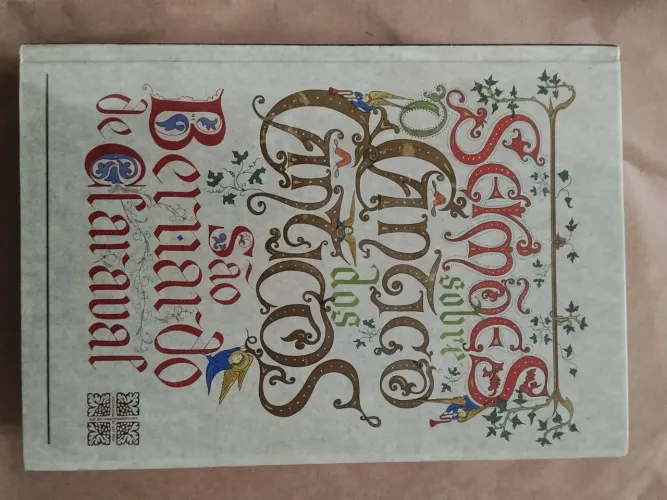 Sermões
sobre
o Cântico
dos
Cânticos
São
Bernardo
de Claraval